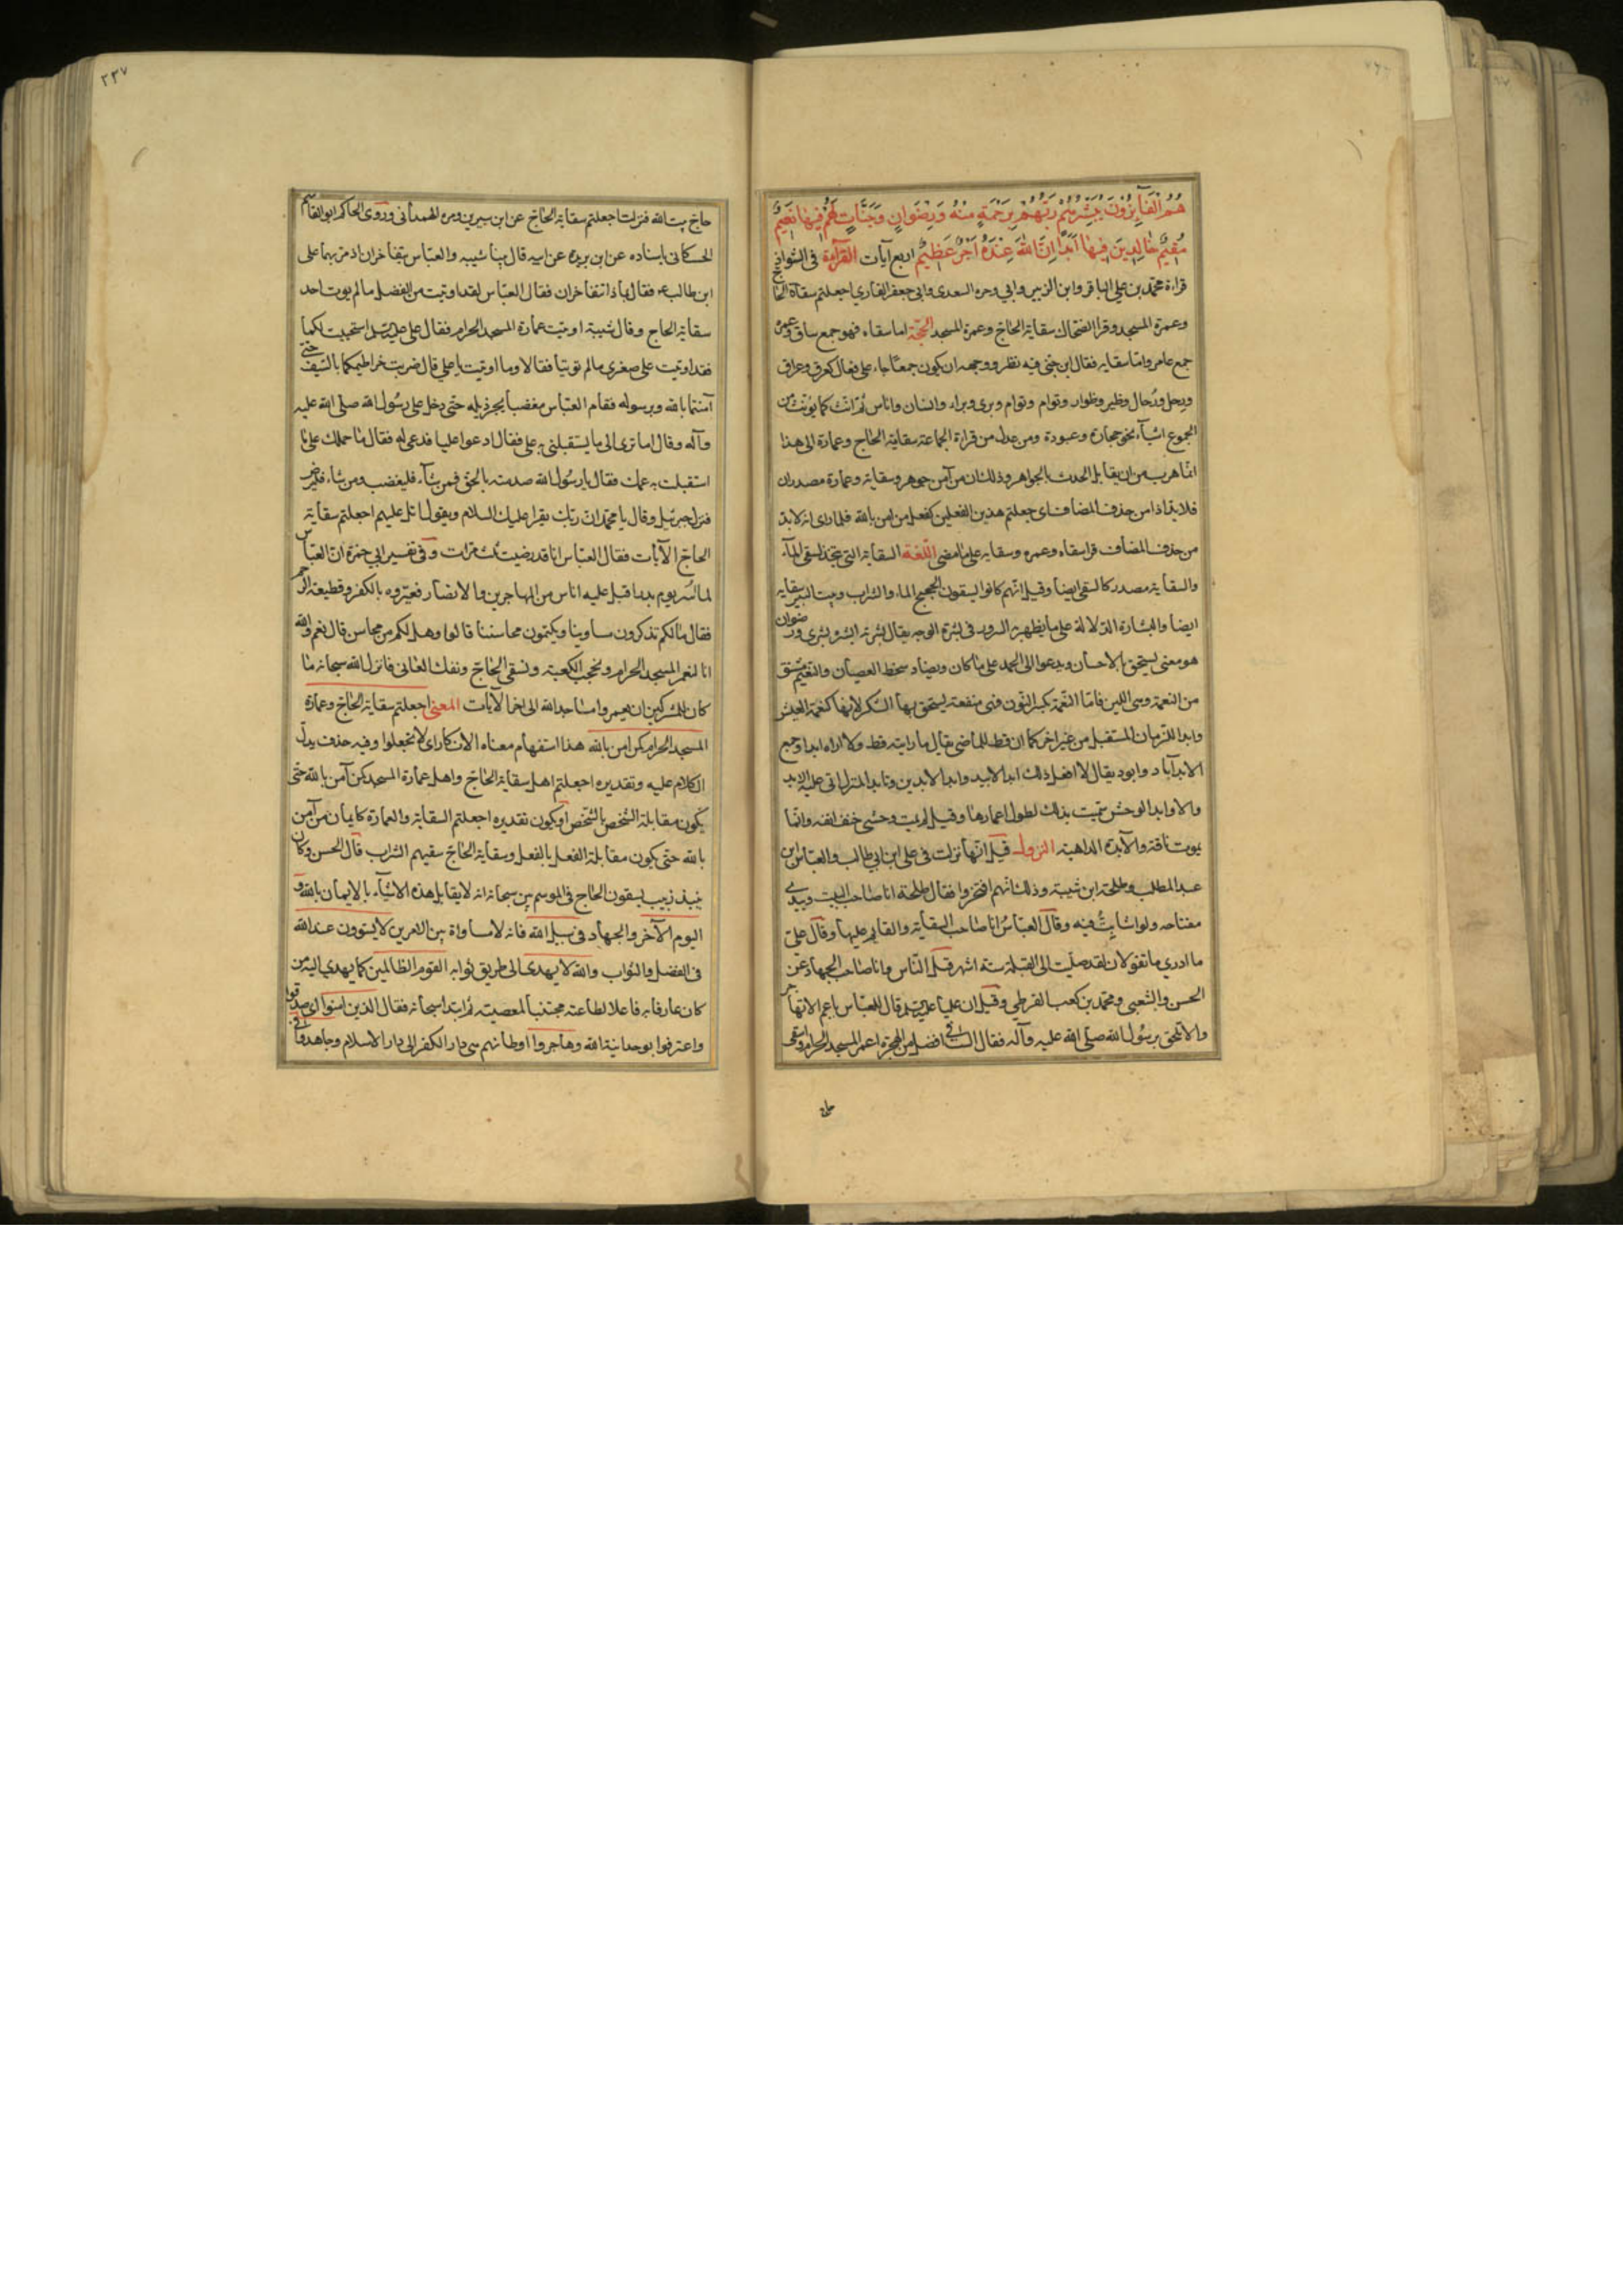 هُمُ الْفَآئِزُونَ يُبَشِّرُهُمْ رَبُّهُمْ بِرَحْمَةٍ مِنْهُ وَرِضْوَانٍ وَجَنَّاتٍ لَهُمْ فِيهَا نَعِيمٌ
مُقِيمٌ خَالِدِينَ فِيهَا اَبَدًا اِنَّ اللهَ عِنْدَهُ اَجْرٌ عَظِيمٌ اربع آيات القرآءة فى الشواذ
قراءة محمد بن على الباقر وابن الزبير وابي وجره السعدى وابى جعفر القاري اجعلتم سقاة الحاج
وعمرة المسجد وقرا الضحاك سقاية الحاج وعمرة المسجد الحجة اما سقاه فهو جمع ساق وعمره
جمع عامر واما سقايه فقال ابن جنى فيه نظر ووجهه ان يكون جمعا جاء على فعال كعرق وعراق
ورخل ورخال وظير وظوار وتوام وتوام وبرى وبراء وانسان واناس ثم انث كما يؤنث من
الجموع اشياء نحو حجارة وعبودة ومن عدل من قراءة الجماعة سقاية الحاج وعمارة الى هذا
انما هرب من ان يقابل الحدث بالجواهر وذلك ان من آمن جوهر وسقاية وعمارة مصدران
فلا بد اذا من حذف المضاف اى جعلتم هذين الفعلين كفعل من امن بالله فلما راى انه لا بد
من حذف المضاف قرا سقاه وعمره وسقايه على ما مضى اللغة السقاية التى تتخذ لسقى الماء
والسقاية مصدر كالسقى ايضا وقيل انهم كانوا يسقون الحجيج الماء والشراب وبيت البئر سقايه
ايضا والبشارة الدلالة على ما يظهر به السرور فى بشرة الوجه يقال بشرته ابشره بشرى ورضوان
هو معنى يستحق بالاحسان ويدعوا الى الحمد على ما كان ويضاد سخط العصيان والنعيم مشتق
من النعمة وهى اللين فاما النعمة بكسر النون فهى منفعة يستحق بها الشكر لانها كنعمة العيش
وابدا للزمان المستقبل من غير اخر كما ان قط للماضى يقال ما رايته قط ولا اراه ابدا وجمع
الابد آباد وابود يقال لا افعل ذلك ابد الابيد وابد الابدين وتابد المنزل اتى عليه الابد
والاوابد الوحش سميت بذلك لطول اعمارها وقيل لم يمت وحشى حتف انفه وانما
يموت بآفة والآبدة الداهية النزول قيل انها نزلت فى على ابن ابي طالب والعباس ابن
عبد المطلب وطلحة ابن شيبة وذلك انهم افتخروا فقال طلحة انا صاحب البيت وبيدي
مفتاحه ولو اشاء بتّ فيه وقال العباس انا صاحب السقاية والقايم عليها وقال علىّ
ما ادري ما تقولان لقد صليت الى القبلة ستة اشهر قبل الناس وانا صاحب الجهاد عن
الحسن والشعبى ومحمد بن كعب القرظي وقيل ان عليا عليه السلم قال للعباس يا عم الا تهاجر
والا تلحق برسول الله صلى الله عليه وآله فقال الست فى افضل من الهجرة اعمر المسجد الحرام واسقى
حاج
٢٣٧
حاج بيت الله فنزلت اجعلتم سقاية الحاج عن ابن سيرين ومره الهمدانى وروى الحاكم ابو القاسم
الحسكانى باسناده عن ابن بريده عن ابيه قال بينا شيبه والعباس يتفاخران اذ مر بهما على
ابن طالب ع فقال بماذا تتفاخران فقال العباس لقد اوتيت من الفضل ما لم يوت احد
سقاية الحاج وقال شيبة اوتيت عمارة المسجد الحرام فقال على عليه السلم استحييت لكما
فقد اوتيت على صغرى ما لم توتيا فقالا وما اوتيت يا علي قال ضربت خراطيمكما بالسيف حتى
آمنتما بالله وبرسوله فقام العباس مغضبا يجر ذيله حتى دخل على رسول الله صلى الله عليه
وآله وقال اما ترى الى ما يستقبلنى به على فقال ادعوا عليا فدعى له فقال ما حملك على ما
استقبلت به عمك فقال يا رسول الله صدمته بالحق فمن شاء فليغضب ومن شاء فليرض
فنزل جبرئيل وقال يا محمد ان ربك يقرا عليك السلام ويقول اتل عليهم اجعلتم سقاية
الحاج الآيات فقال العباس انا قد رضيت ثلث مرات وفى تفسير ابي حمزة ان العباس
لما اسر يوم بدر اقبل عليه اناس من المهاجرين والانصار فعيروه بالكفر وقطيعة الرحم
فقال ما لكم تذكرون مساوينا وتكتمون محاسننا قالوا وهل لكم من محاسن قال نعم والله
انا لنعمر المسجد الحرام ونحجب الكعبة ونسقى الحاج ونفك العانى فانزل الله سبحانه ما
كان للمشركين ان يعمروا مساجد الله الى اخر الآيات المعنى اجعلتم سقاية الحاج وعمارة
المسجد الحرام كمن امن بالله هذا استفهام معناه الانكار اى لا تجعلوا وفيه حذف يدل
الكلام عليه وتقديره اجعلتم اهل سقاية الحاج واهل عمارة المسجد كمن آمن بالله حتى
يكون مقابلة الشخص بالشخص او يكون تقديره اجعلتم السقاية والعمارة كايمان من آمن
بالله حتى يكون مقابلة الفعل بالفعل وسقاية الحاج سقيهم الشراب قال الحسن وكان
نبيذ زبيب يسقون الحاج فى الموسم بين سبحانه انه لا يقابل هذه الاشياء بالايمان بالله و
اليوم الآخر والجهاد فى سبيل الله فانه لا مساواة بين الامرين لا يستوون عند الله
فى الفضل والثواب والله لا يهدى الى طريق ثوابه القوم الظالمين كما يهدي اليه من
كان عارفا به فاعلا لطاعته مجتنبا لمعصيته ثم ابتدا سبحانه فقال الذين امنوا اى صدقوا
واعترفوا بوحدانية الله وهاجروا اوطانهم من دار الكفر الى دار الاسلام وجاهدوا فى